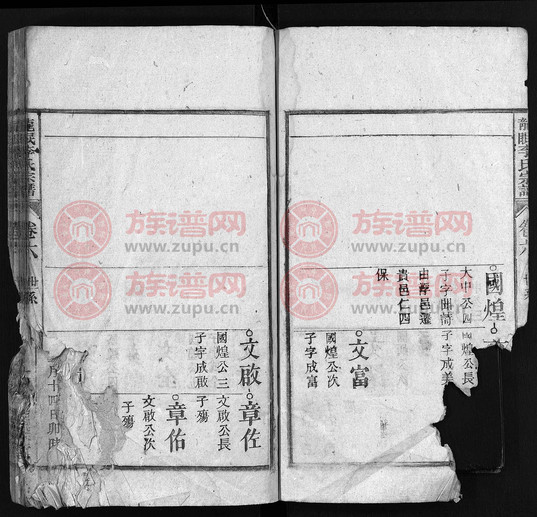 龍眠李氏宗譜
卷六
世系
國煌
大中公四
子字曲
由
邑遷
貴邑仁四
保
國煌公長
子字成美
文富
國煌公次
子字成富
文啟
國煌公三
子字成啟
章佐
文啟公長
子殤
章佑
文啟公次
子殤
龍眠李氏宗譜
卷六
世系
族谱网
www.zupu.cn
族谱网
www.zupu.cn
族谱网
www.zupu.cn
族谱网
www.zupu.cn